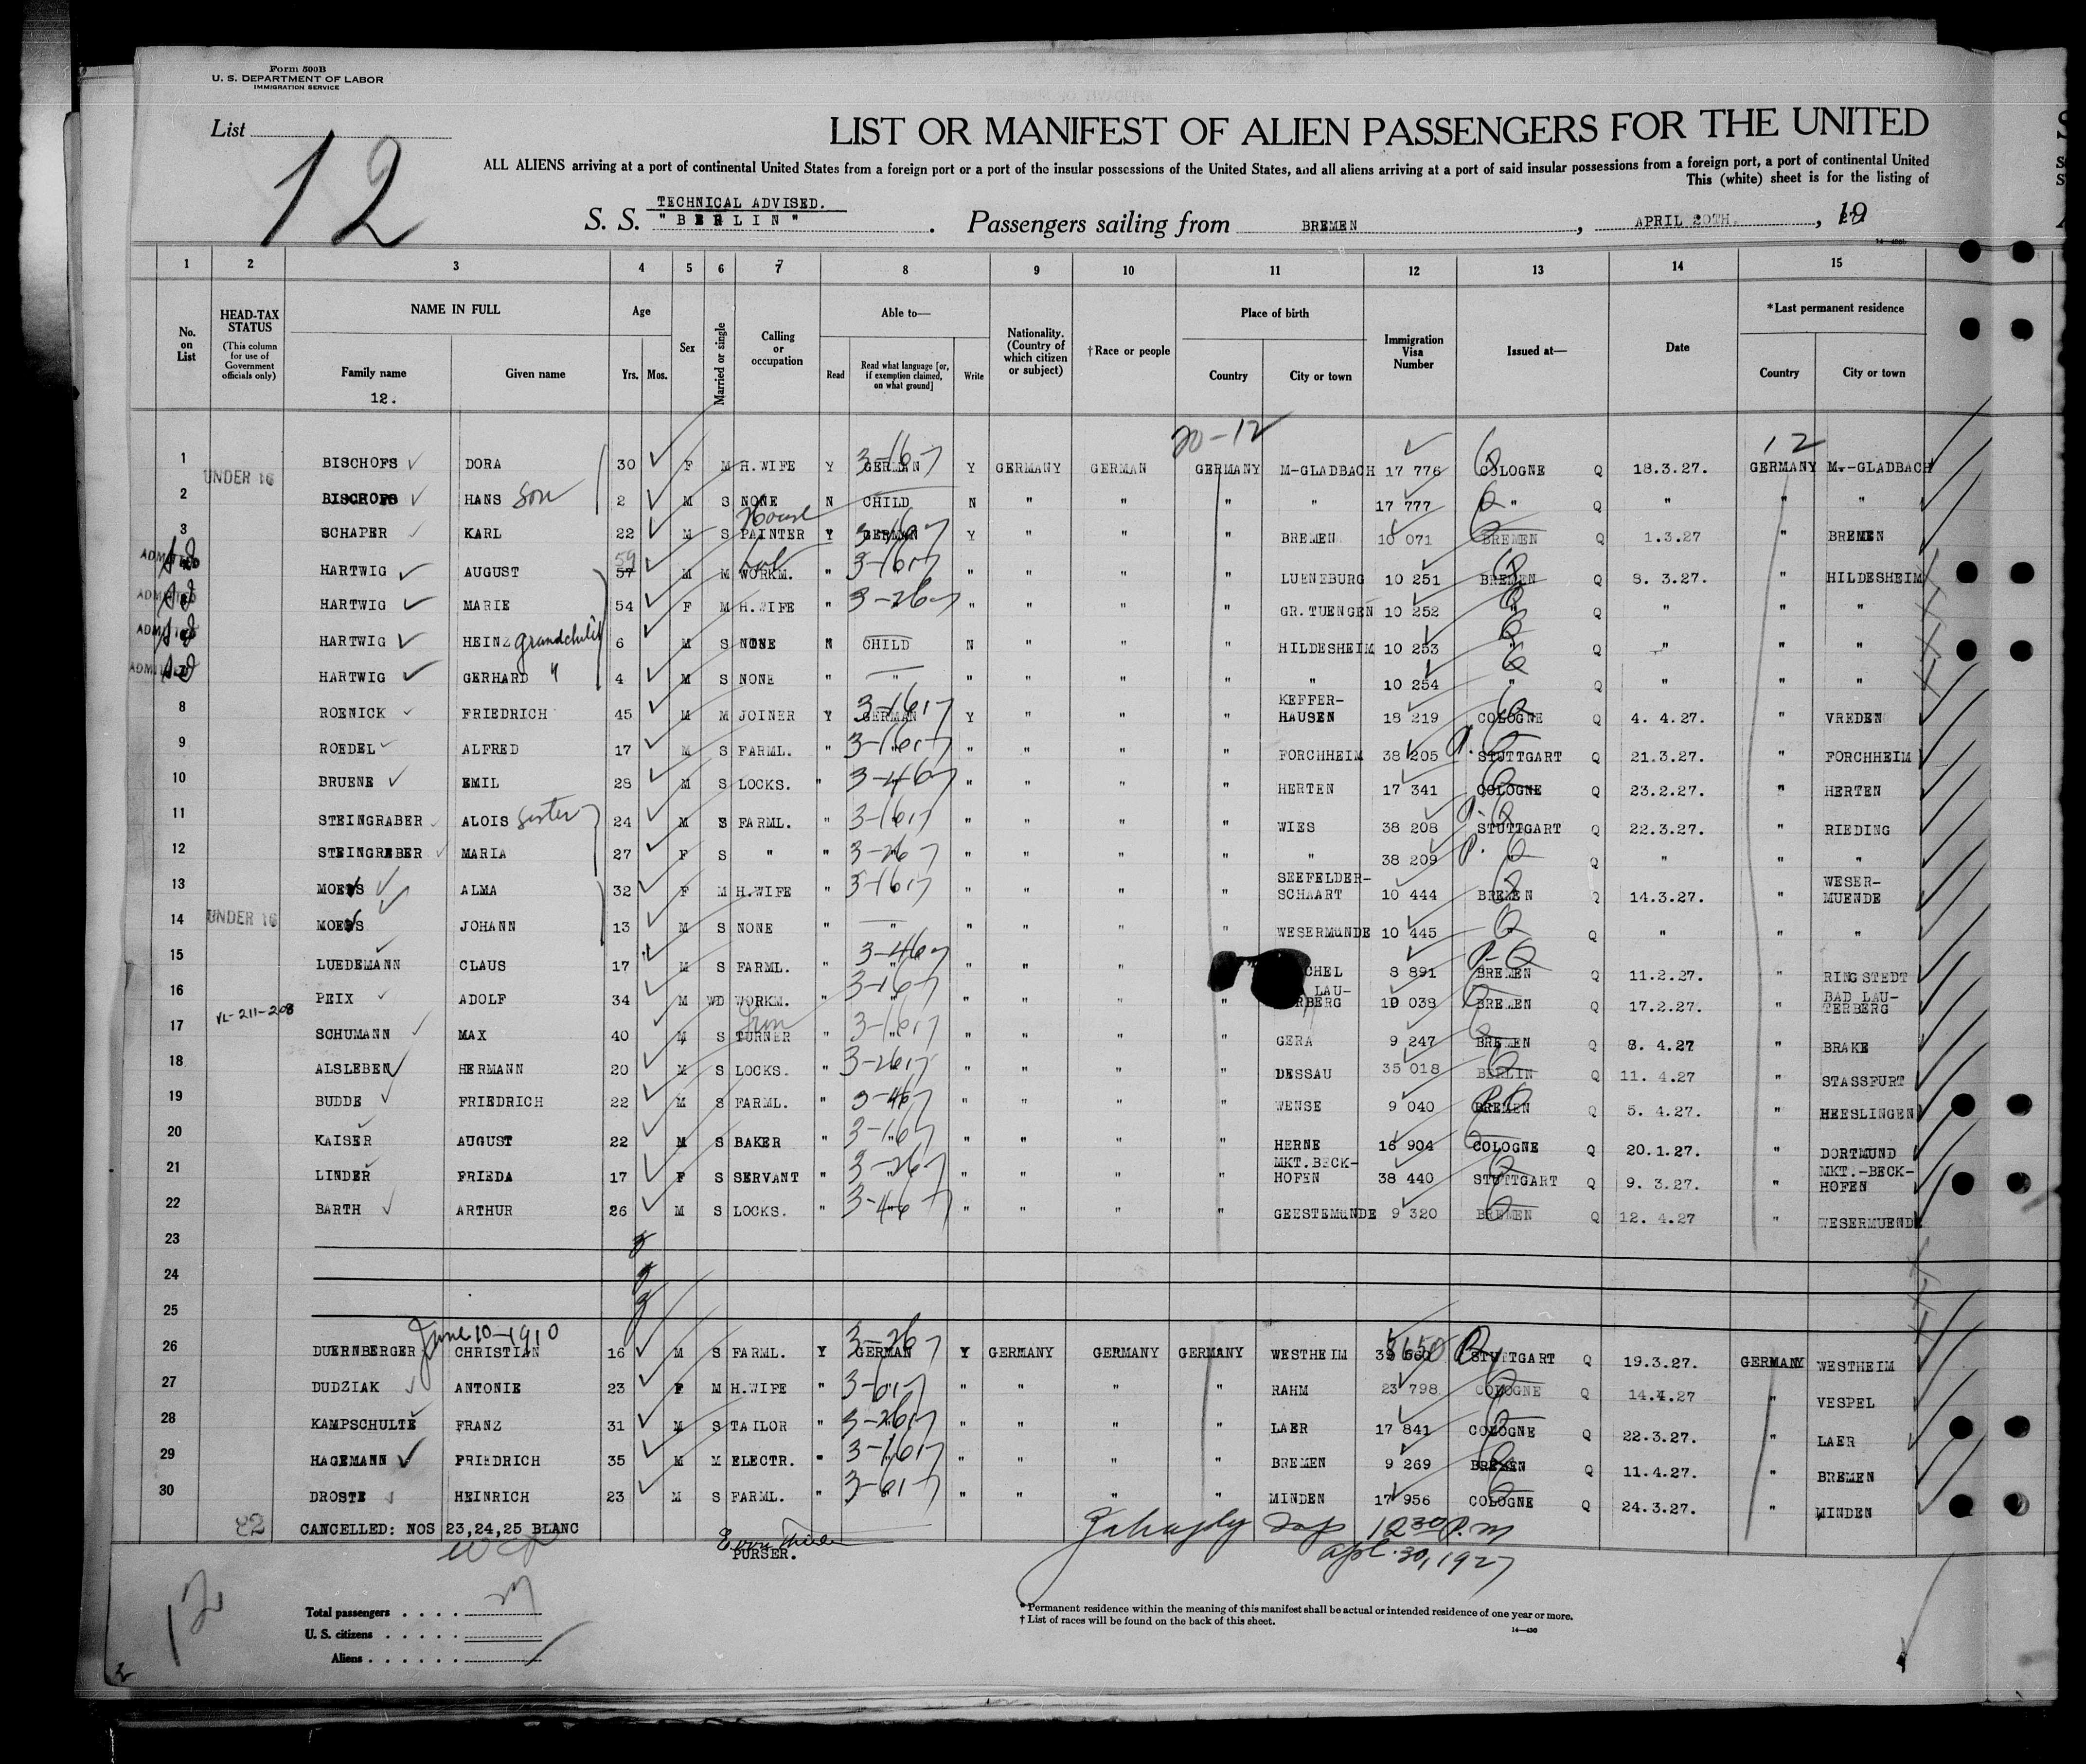 Form 500B
U. S. DEPARTMENT OF LABOR
IMMIGRATION SERVICE
List
12
LIST OR MANIFEST OF ALIEN PASSENGERS FOR THE UNITED
ALL ALIENS arriving at a port of continental United States from a foreign port or a port of the insular possessions of the United States, and all aliens arriving at a port of said insular possessions from a foreign port, a port of continental United
This (white) sheet is for the listing of
TECHNICAL ADVISED.
S. S. "BERLIN" . Passengers sailing from BREMEN , APRIL 20TH. , 19 27
1 2 3 4 5 6 7 8 9 10 11 12 13 14 15
No. on List
HEAD-TAX STATUS (This column for use of Government officials only)
NAME IN FULL
Family name Given name
12.
Age
Yrs. Mos.
Sex
Married or single
Calling or occupation
Able to—
Read Read what language [or, if exemption claimed, on what ground] Write
Nationality. (Country of which citizen or subject)
†Race or people
Place of birth
Country City or town
Immigration Visa Number
Issued at—
Date
*Last permanent residence
Country City or town
20-12 12
1 UNDER 16 BISCHOFS DORA 30 F M H.WIFE Y GERMAN Y GERMANY GERMAN GERMANY M-GLADBACH 17 776 COLOGNE Q 18.3.27. GERMANY M.-GLADBACH
2 BISCHOFS HANS son 2 M S NONE N CHILD N " " " " 17 777 " Q " " "
3 SCHAPER KARL 22 M S House PAINTER Y GERMAN Y " " " BREMEN 10 071 BREMEN Q 1.3.27 " BREMEN
ADMITTED HARTWIG AUGUST 57 59 M M WORKM. " 3-1617 " " " " LUENEBURG 10 251 BREMEN Q 8. 3.27. " HILDESHEIM
ADMITTED HARTWIG MARIE 54 F M H.WIFE " 3-267 " " " " GR.TUENGEN 10 252 " Q " " "
ADMITTED HARTWIG HEINZ grandchild 6 M S NONE N CHILD N " " " HILDESHEIM 10 253 " Q " " "
ADMITTED HARTWIG GERHARD " 4 M S NONE " " " " " " " 10 254 " Q " " "
8 ROENICK FRIEDRICH 45 M M JOINER Y GERMAN Y " " " KEFFER-HAUSEN 18 219 COLOGNE Q 4. 4.27. " VREDEN
9 ROEDEL ALFRED 17 M S FARML. " " " " " " FORCHHEIM 38 205 STUTTGART Q 21.3.27. " FORCHHEIM
10 BRUENE EMIL 28 M S LOCKS. " " " " " " HERTEN 17 341 COLOGNE Q 23.2.27. " HERTEN
11 STEINGRABER ALOIS sister 24 M S FARML. " " " " " " WIES 38 208 STUTTGART Q 22.3.27. " RIEDING
12 STEINGREBER MARIA 27 F S " " " " " " " " 38 209 " Q " " "
13 MOERS ALMA 32 F M H.WIFE " " " " " " SEEFELDER-SCHAART 10 444 BREMEN Q 14.3.27. " WESER-MUENDE
14 UNDER 16 JOHANN 13 M S NONE " " " " " " WESERMUNDE 10 445 Q " " "
15 LUEDEMANN CLAUS 17 M S FARML. " " " " " CHEL 8 891 BREMEN Q 11.2.27. " RINGSTEDT
16 PEIX ADOLF 34 M WD WORKM. " " " " " " LAU-RBERG 10 038 BREMEN Q 17.2.27. " BAD LAU-TERBERG
VL-211-208
17 SCHUMANN MAX 40 M S Iron TURNER " " " " " " GERA 9 247 BREMEN Q 8. 4.27 " BRAKE
18 ALSLEBEN HERMANN 20 M S LOCKS. " " " " " " DESSAU 35 018 BERLIN Q 11. 4.27 " STASSFURT
19 BUDDE FRIEDRICH 22 M S FARML. " " " " " " WENSE 9 040 BREMEN Q 5. 4.27. " HEESLINGEN
20 KAISER AUGUST 22 M S BAKER " " " " " " HERNE 16 904 COLOGNE Q 20.1.27. " DORTMUND
21 LINDER FRIEDA 17 F S SERVANT " " " " " " MKT.BECK-HOFEN 38 440 STUTTGART Q 9. 3.27. " MKT.-BECK-HOFEN
22 BARTH ARTHUR 26 M S LOCKS. " " " " " " GEESTEMUNDE 9 320 BREMEN Q 12. 4.27 " WESERMUENDE
23
24
25
June 10-1910
26 DUERNBERGER CHRISTIAN 16 M S FARML. Y GERMAN Y GERMANY GERMANY GERMANY WESTHEIM STUTTGART Q 19.3.27. GERMANY WESTHEIM
27 DUDZIAK ANTONIE 23 F M H.WIFE " " " " " " RAHM 23 798 COLOGNE Q 14.4.27 " VESPEL
28 KAMPSCHULTE FRANZ 31 M S TAILOR " " " " " " LAER 17 841 COLOGNE Q 22.3.27. " LAER
29 HAGEMANN FRIEDRICH 35 M M ELECTR. " " " " " " BREMEN 9 269 BREMEN Q 11.4.27. " BREMEN
30 DROSTE HEINRICH 23 M S FARML. " " " " " " MINDEN 17 956 COLOGNE Q 24.3.27. " MINDEN
CANCELLED: NOS 23,24,25 BLANC
PURSER.
12 30 P.M
Apl. 30, 1927
12
Total passengers . . . . 27
U. S. citizens . . . . .
Aliens . . . . . .
* Permanent residence within the meaning of this manifest shall be actual or intended residence of one year or more.
† List of races will be found on the back of this sheet.
14—430